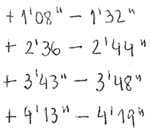 + 1'08" - 1'32"
+ 2'36 - 2'44"
+ 3'43" - 3'48"
+ 4'13" - 4'19"